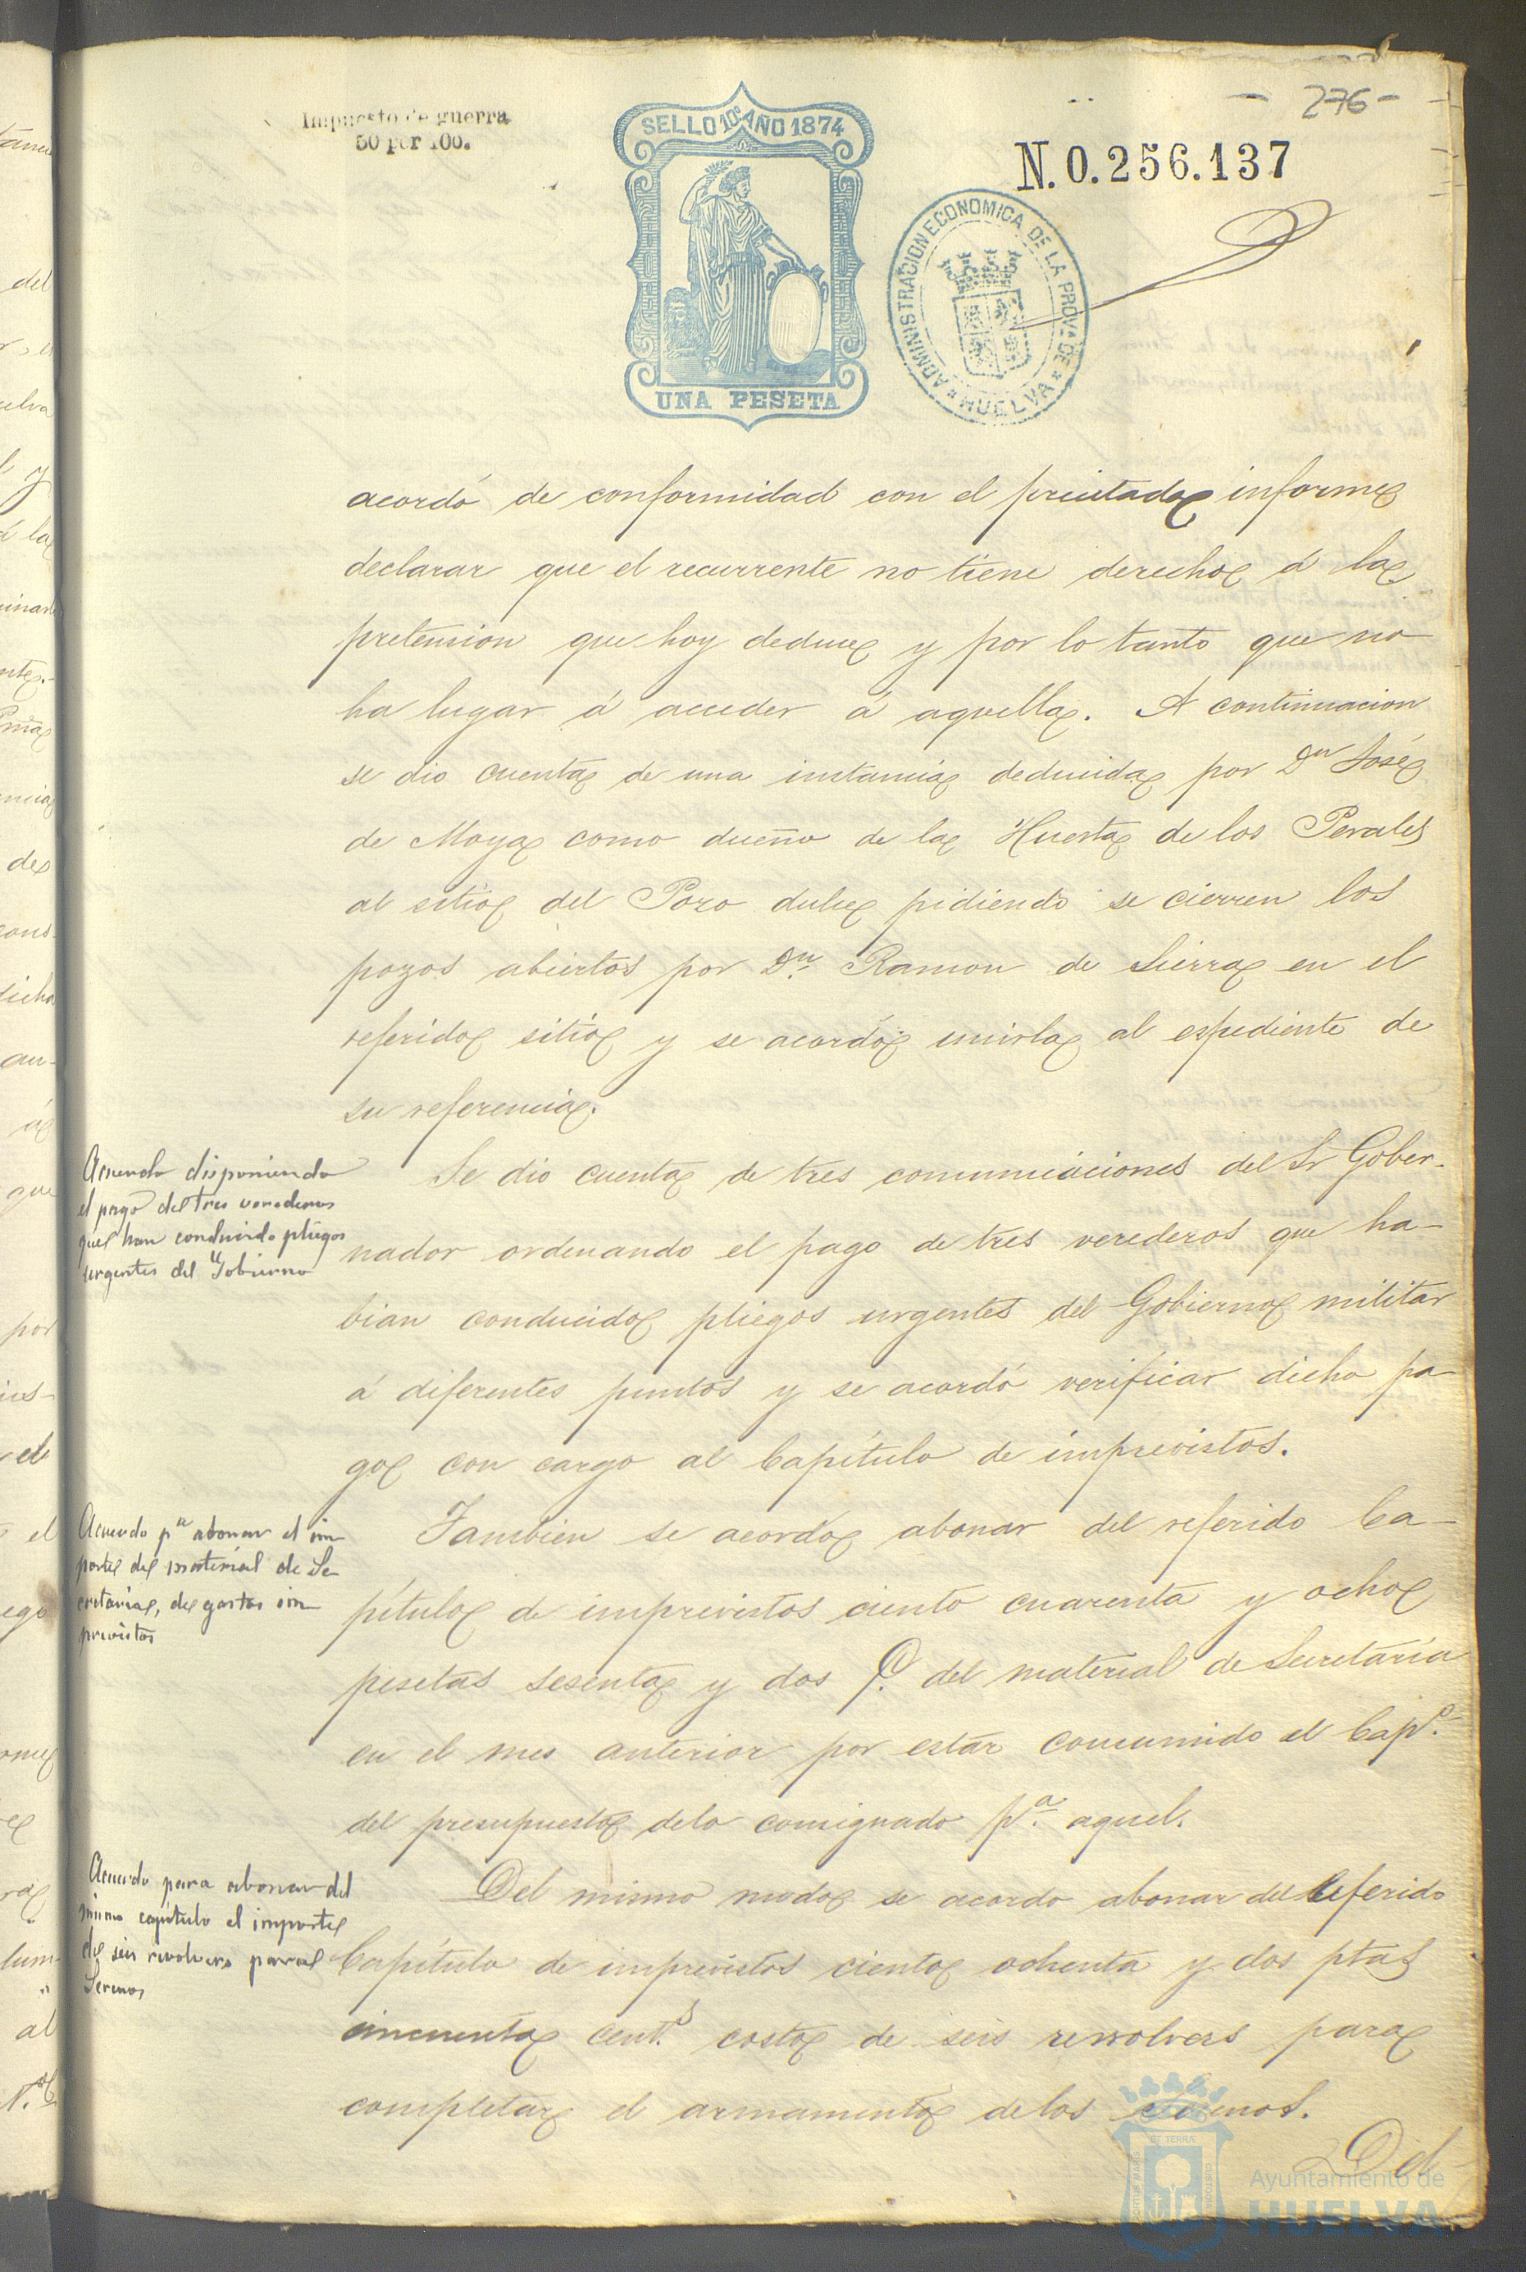 - 276 -
Impuesto de guerra
50 por 100.
SELLO 10º AÑO 1874
UNA PESETA
N. 0.256.137
ADMINISTRACION ECONOMICA DE LA PROVª DE
* HUELVA *
acordó de conformidad con el precitado informe
declarar que el recurrente no tiene derecho á la
pretension que hoy deduce y por lo tanto que no
ha lugar á acceder á aquella. A continuacion
se dio cuenta de una instancia deducida por Dn José
de Moya como dueño de la Huerta de los Perales
al sitio del Pozo dulce pidiendo se cierren los
pozos abiertos por Dn. Ramon de Sierra en el
referido sitio y se acordó unirla al espediente de
su referencia.
Acuerdo disponiendo
el pago del tres verederos
que han conducido pliegos
urgentes del Gobierno
Se dio cuenta de tres comunicaciones del Sr Gober-
nador ordenando el pago de tres verederos que ha-
bian conducido pliegos urgentes del Gobierno militar
á diferentes puntos y se acordó verificar dicho pa-
go con cargo al Capítulo de imprevistos.
Acuerdo pa abonar el im-
porte del material de Se-
cretaria, de gastos im-
previstos
Tambien se acordo abonar del referido Ca-
pítulo de imprevistos ciento cuarenta y ocho
pesetas sesenta y dos C. del material de Secretaría
en el mes anterior por estar consumido el Capo.
del presupuesto delo consignado pa. aquel.
Acuerdo para abonar del
mismo capitulo el importe
de seis revolvers para
Serenos
Del mismo modo se acordo abonar del referido
Capítulo de imprevistos ciento ochenta y dos ptas
cincuenta cents. costo de seis revolvers para
completar el armamento delos serenos.
Del
Ayuntamiento de
HUELVA